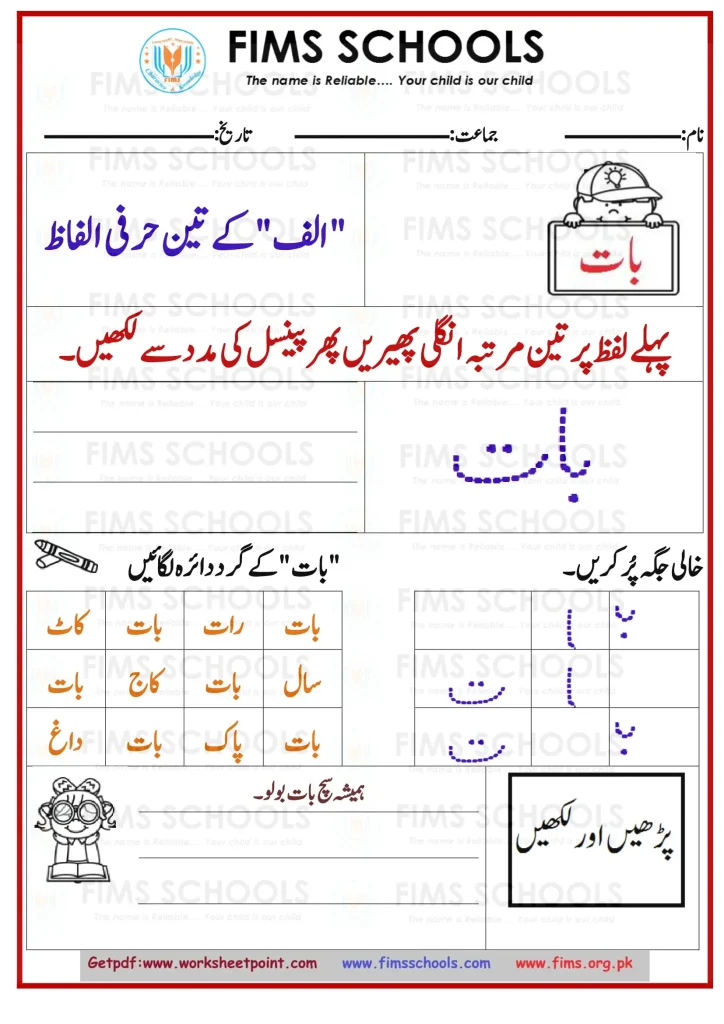 FIMS SCHOOLS
The name is Reliable.... Your child is our child
نام: جماعت: تاریخ:
بات
"الف" کے تین حرفی الفاظ
پہلے لفظ پر تین مرتبہ انگلی پھیریں پھر پینسل کی مدد سے لکھیں۔
بات
خالی جگہ پُر کریں۔
ب ا
ا ت
ب ت
"بات" کے گرد دائرہ لگائیں
بات رات بات کاٹ
سال بات کاج بات
بات پاک بات داغ
پڑھیں اور لکھیں
ہمیشہ سچ بات بولو۔
Getpdf:www.worksheetpoint.com www.fimsschools.com www.fims.org.pk